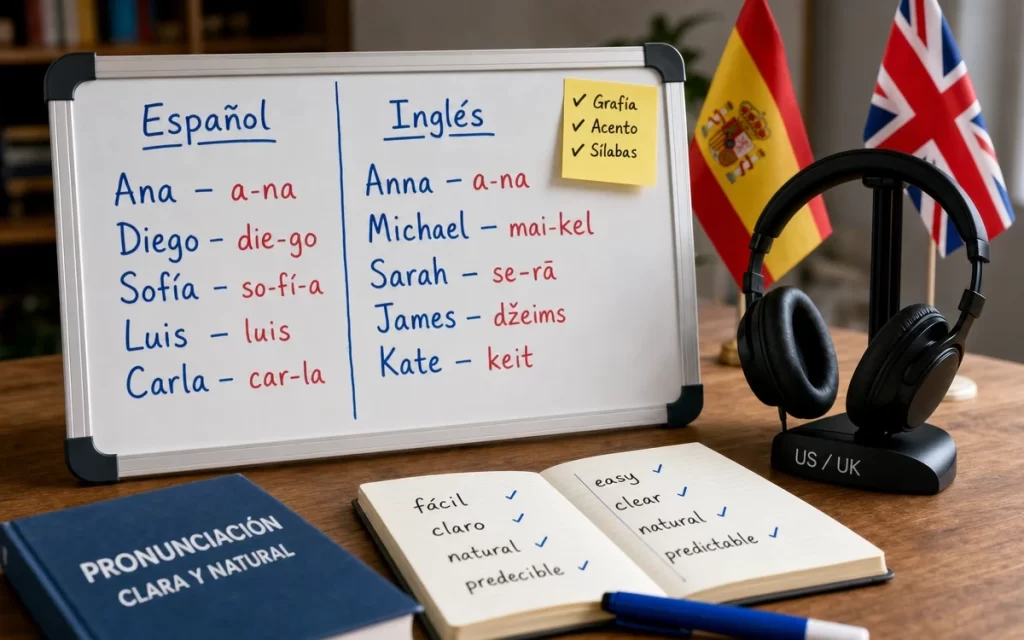 Español
Ana – a-na
Diego – die-go
Sofía – so-fí-a
Luis – luis
Carla – car-la
Inglés
Anna – a-na
Michael – mai-kel
Sarah – se-rā
James – džeims
Kate – keit
✓ Grafía
✓ Acento
✓ Sílabas
US / UK
PRONUNCIACIÓN
CLARA Y NATURAL
fácil ✓
claro ✓
natural ✓
predecible ✓
easy ✓
clear ✓
natural ✓
predictable ✓